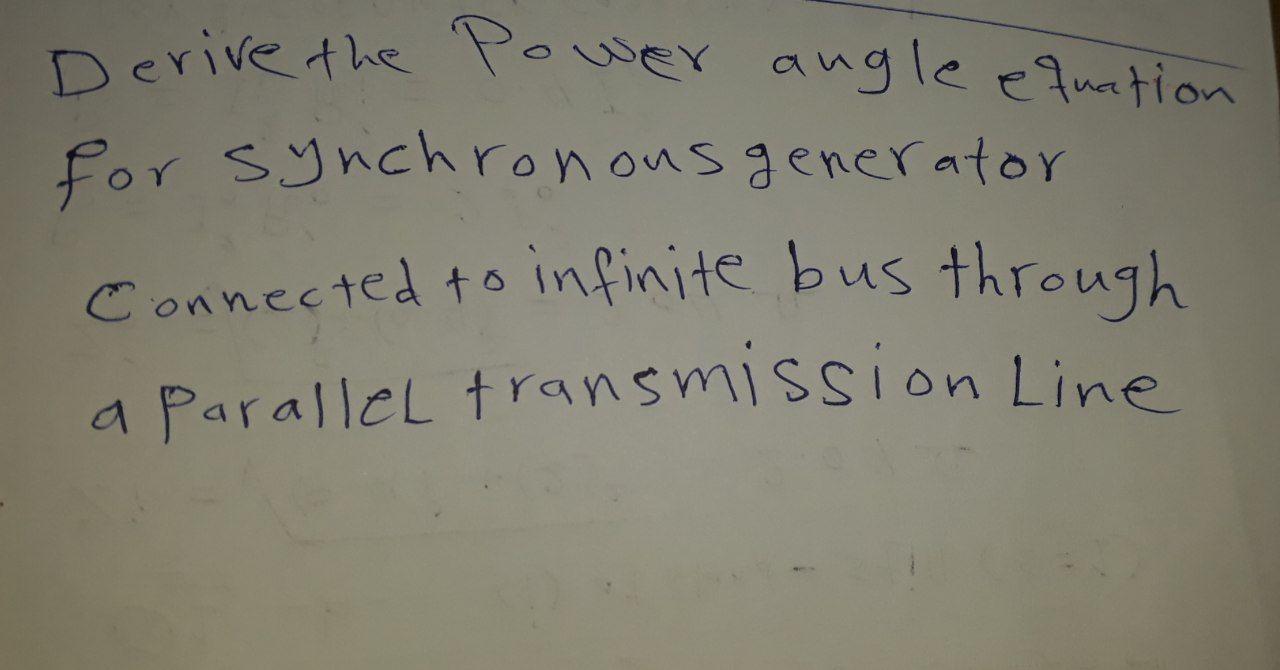 Derive the Power angle equation
for synchronous generator
Connected to infinite bus through
a Parallel transmission Line